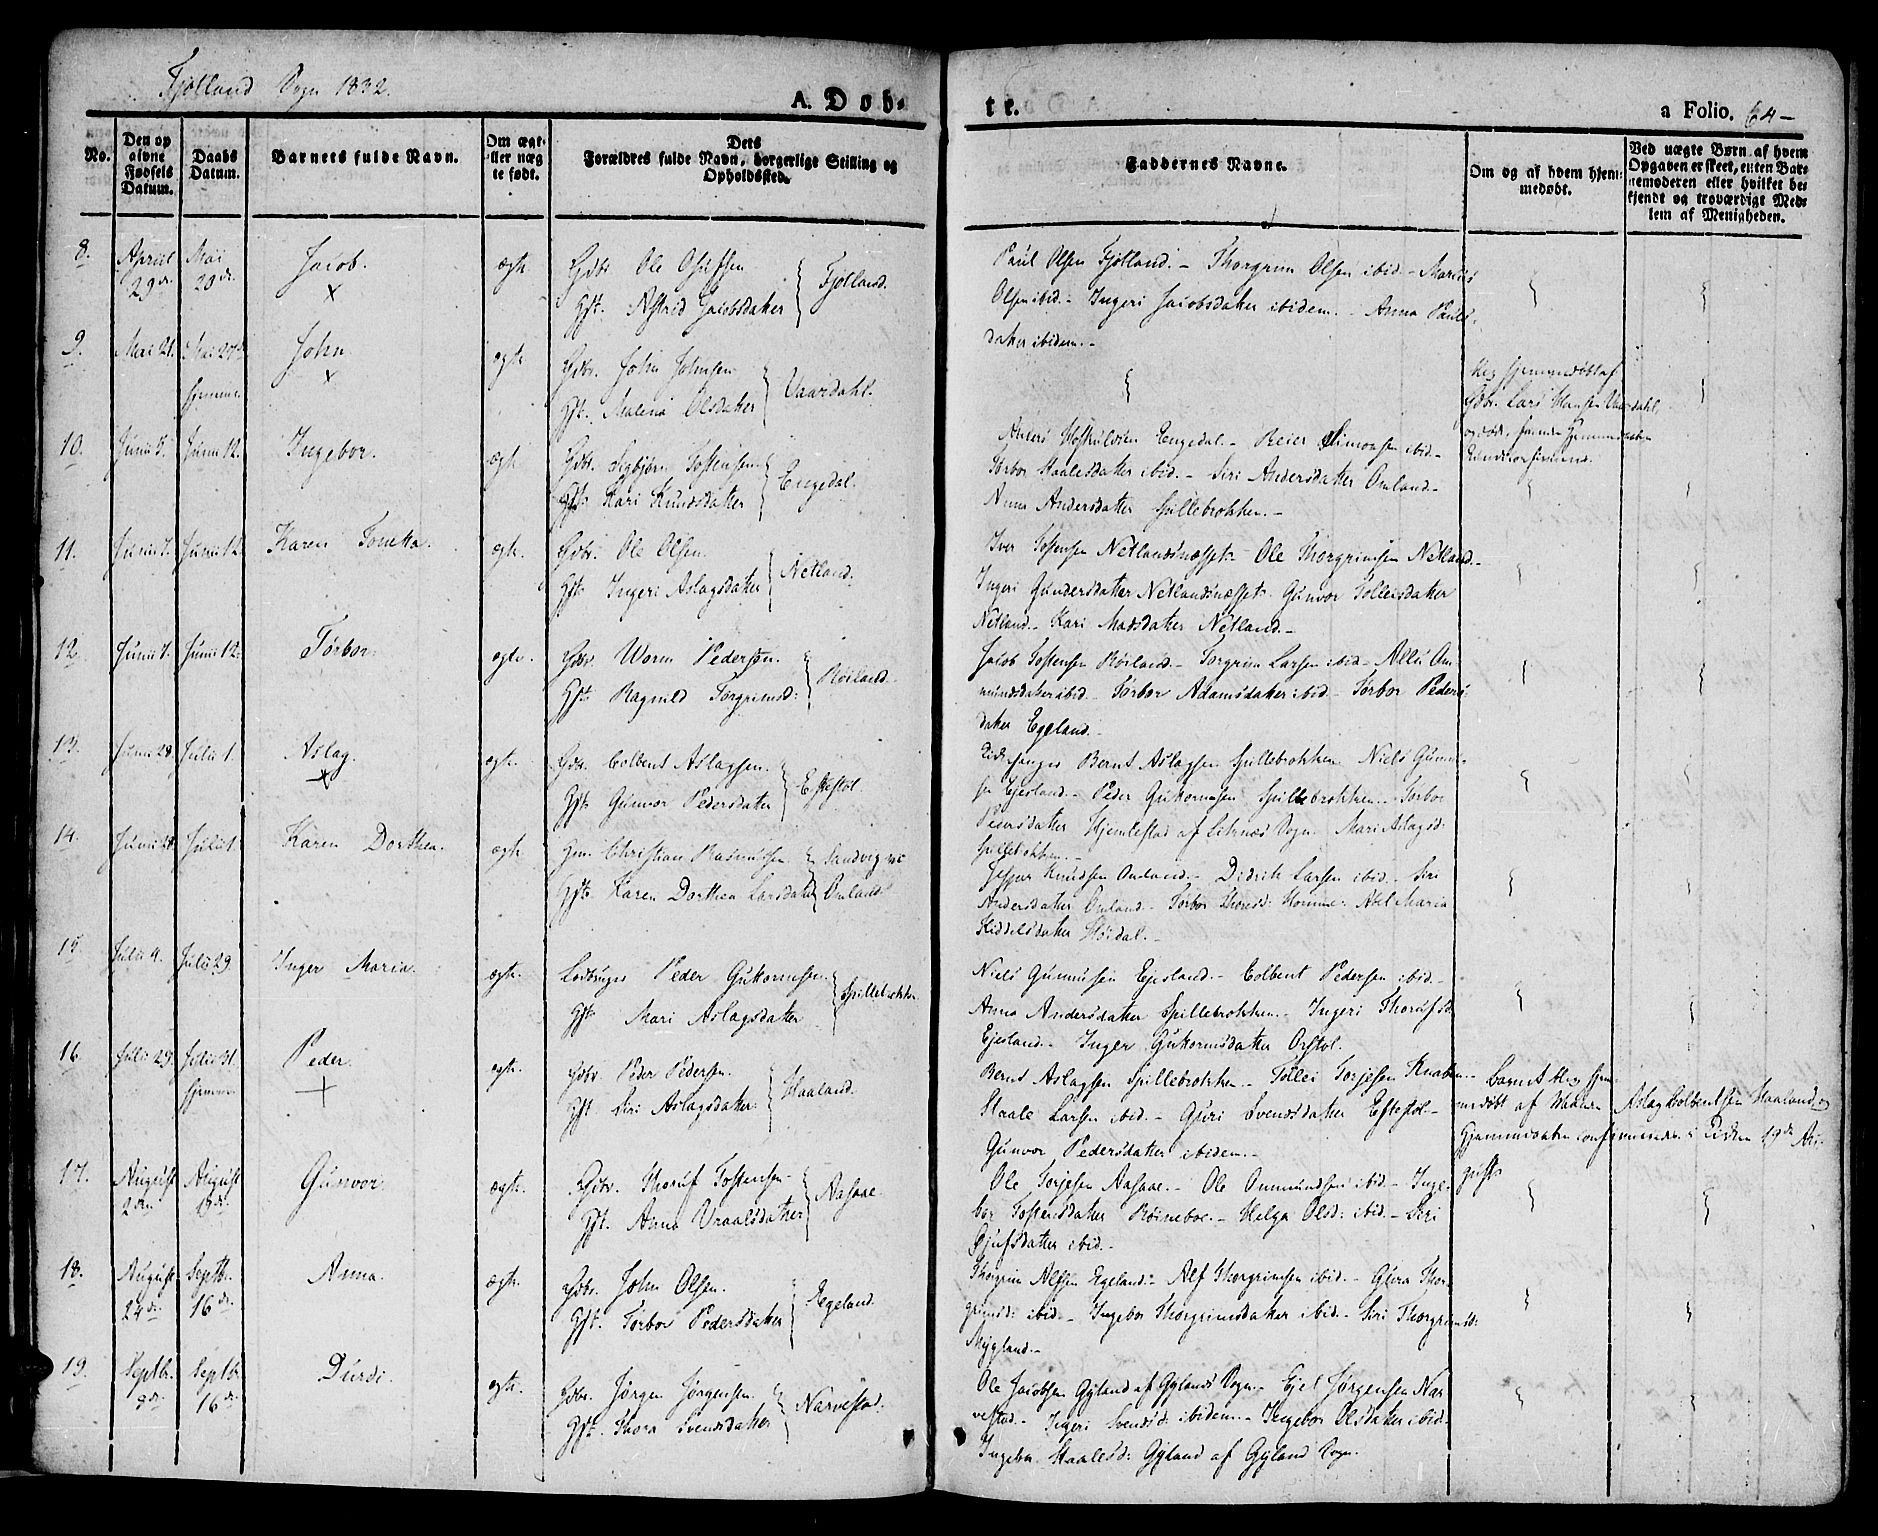 Fjotland Sogn 1832.
A. Døb-
te.
a Folio. 64-
No.
Den op
givne
Fødsels
Datum.
Daabs
Datum.
Barnets fulde Navn.
Om ægte
eller uæg
te født.
Dets
Forældres fulde Navn, borgerlige Stilling og
Opholdssted.
Faddernes Navne.
Om og af hvem hjem-
medøbt.
Ved uægte Børn af hvem
Opgaven er skeet, enten Bar-
nemoderen eller hvilket be-
kjendt og troværdigt Med-
lem af Menigheden.
8.
April
29de
Mai
20de
Jacob.
ægte
Gdbr. Ole
Hst. Astrid Jacobsdatter
Fjotland.
Paul Olsen Fjotland.- Thorgrim Olsen ibid.- Marius
Olsen ibid.- Ingeri Jacobsdatter ibidem.- Anna Pauls-
datter ibidem.-
9.
Mai 21.
Mai 27
hjemme
John
ægte
Gdbr. John Johnsen
Hst. Malena Olsdatter
Vaardahl.
hjemmedøbt af
Gdbr. Lars Hansen Vaardahl,
10.
Junii 5.
Junii 12.
Ingebor.
ægte
Gdbr. Sigbjørn Tostensen
Hst. Kari Knudsdatter
Engedal.
Engedal.- Reier Simonsen ibid.-
Torbor Staalesdatter ibid.- Siri Andersdatter Omland.-
Anna Andersdatter Spillebrokken.-
11.
Junii 7.
Junii 12.
Karen Tonetta.
ægte
Gdbr. Ole Olsen.
Hst. Ingeri Aslagsdatter
Netland.
Iver Tostensen Netlandsnesset- Ole Thorgrimsen Netland.-
Ingeri Gundersdatter Netlandsnesset- Gunvor Tolleisdatter
Netland.- Kari Madsdatter Netland.-
12.
Junii 7.
Junii 12.
Torbor.
ægte.
Gdbr. Worm Pedersen.
Hst. Ragnild Torgrimsd:
Røiland.
Jacob Tostensen Røiland.- Torgrim Larsen ibid- Om-
mundsdatter ibid- Torbor Adamsdatter ibid- Torbor Peders-
datter Egeland.-
13.
Junii 28.
Julii 1.
Aslag.
ægte.
Gdbr. Colbent Aslagsen.
Hst. Gunvor Pedersdatter
Eftestøl
Bernt Aslagsen Spillebrokken Niels Gunni-
sen Ejesland.- Peder Guttormsen Spillebrokken- Torbor
Peersdatter Hjemlestad af Sogn. Mari Aslagsd:
Spillebrokken.-
14.
Junii 28
Julii 1.
Karen Dorthea.
ægte
Christian Rasmusen
Hst. Karen Dorthea Larsdatter
Sandvig
Omland
Jesper Knudsen Omland.- Didrik Larsen ibid.- Siri
Andersdatter Omland- Torbor Homme- Abel Maria
Kiddelsdatter Høidal.-
15.
Julii 9.
Julii 29.
Inger Maria.
ægte.
Peder Guttormsen
Hst. Mari Aslagsdatter
Spillebrokken
Niels Gunnisen Ejesland.- Colbent Pedersen ibid.-
Anna Andersdatter Spillebrokken- Ingeri
Ejesland.- Inger Guttormsdatter
16.
Julii 29.
Julii 31.
hjemme
Peder.
ægte.
Gdbr. Peder Pedersen.
Hst. Siri Aslagsdatter
Haaland.
Bernt Aslagsen Spillebrokken- Tollei Torjesen Knaben-
Staale Larsen ibid.- Guri Svendsdatter Eftestøl-
Gunvor Pedersdatter ibidem.-
Barnet hjem-
medøbt af Aslag Colbentsen Haaland,
i Kirken 19de Au-
gust
17.
August
2den
August
19de
Gunvor
ægte.
Gdbr. Thoruf Tostensen-
Hst. Anna Vraalsdatter
Aasaae.
Ole Torjesen Aasaae.- Ole Ommundsen ibid.- Inge-
bor Tostensdatter Røinebor.- Helga Olsd: ibid.- Siri
ibid.-
18.
August
24de
Septbr.
16de
Anna.
ægte.
Gdbr. John Olsen.
Hst. Torbor Pedersdatter
Egeland.
Thorgrim Alfsen Egeland.- Alf Thorgrimsen ibid.- Thor-
grimsd: ibid.- Ingebor Thorgrimsdatter ibid.- Siri Thorgrimsd:
19.
Septbr.
Septbr.
16de
Durdi.
ægte.
Gdbr. Jørgen Jørgensen.
Hst. Thora Svendsdatter
Narvestad.
Ole Jacobsen Gyland af Gylands Sogn.- Ejel Jørgensen Nar-
vestad.- Ingeri Svendsd: ibidem.- Ingebor Olsdatter ibid.-
Ingebor Staalesd: Gyland af Gyland Sogn.